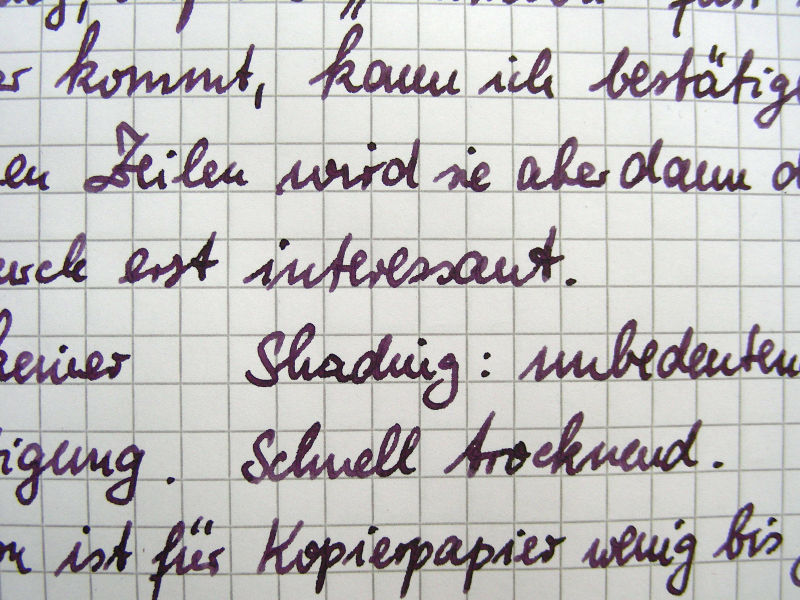 er kommt, kann ich bestätige
en Zeilen wird sie aber dann d
urch erst interessant.
keiner Shading: unbedeuten
tigung. Schnell trocknend.
on ist für Kopierpapier wenig bis g